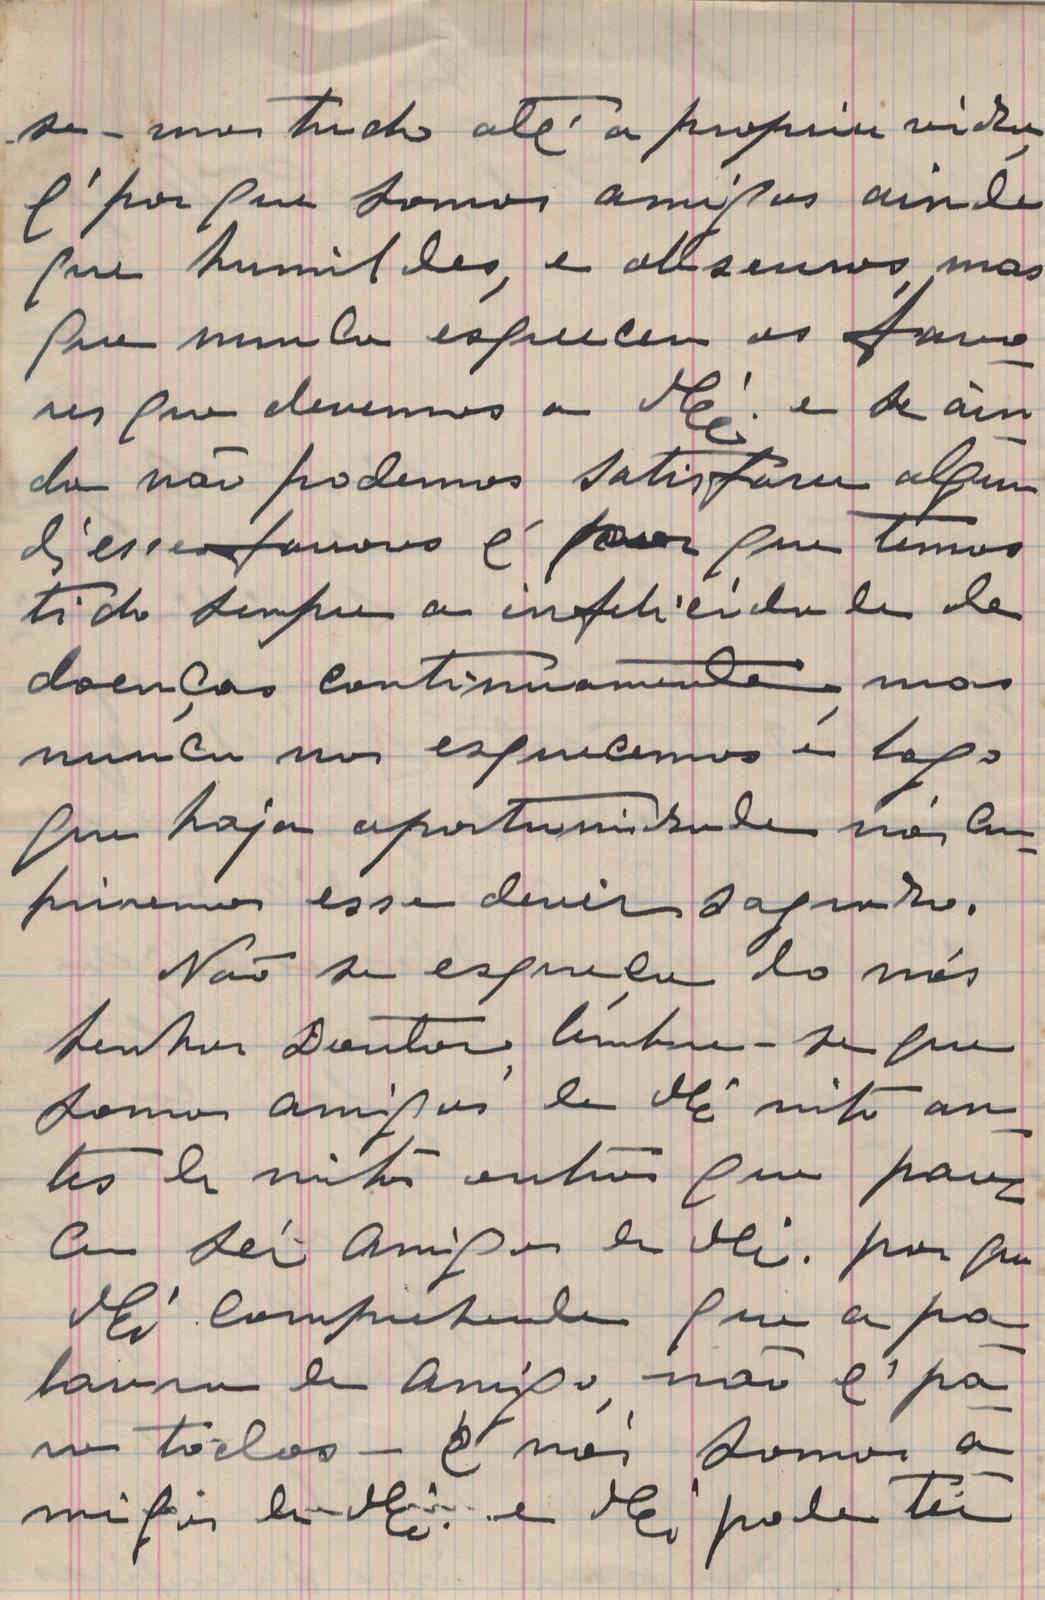 se-mos tudo até a propria vida,
é por que somos amigos ainda
que humildes, e obscuros, mas
que nunca esquecem os favo-
res que devemos a Mcê. e se ain-
da não podemos satisfazer algum
d'esses favores é por que temos
tido sempre a infelicidade de
doenças continuamente, mas
nunca nos esquecemos e logo
que haja oportunidade nós cum-
priremos esse dever sagrado.
Não se esqueça de nós
Senhor Doutor, lembre-se que
somos amigos de Mcê mito an-
tes de mitos outros que pare-
cem ser amigos de Mcê. por que
Mcê comprehende que a pa-
lavra de amigo, não é pa-
ra todos - e nós somos a-
migos de Mcê. e Mcê pode ter